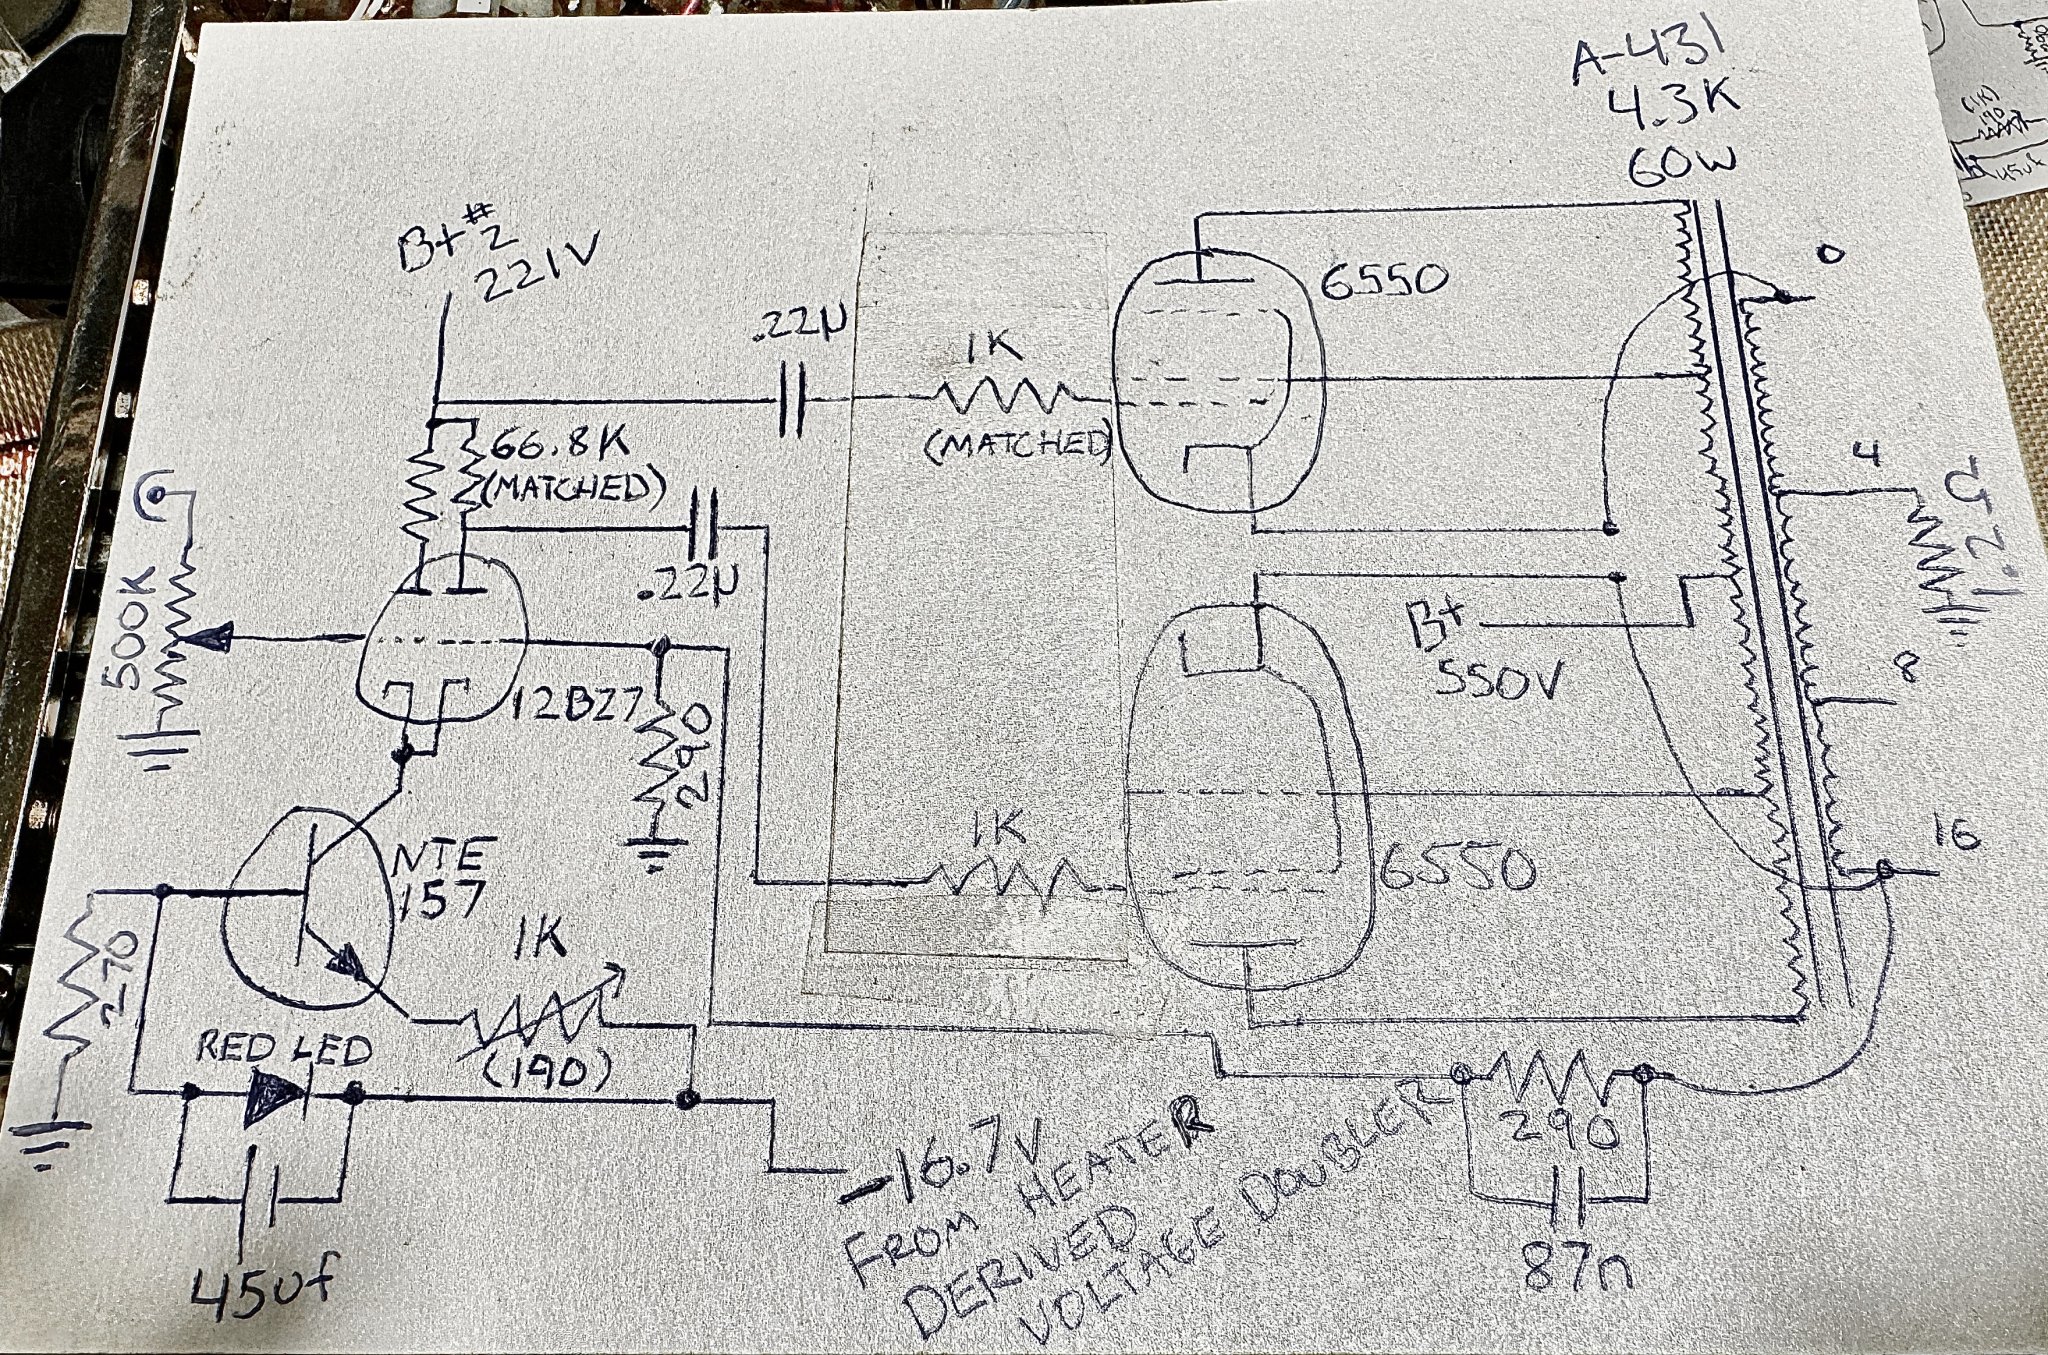 A-431
4.3K
60W
B+ #2
221V
.22µ
1K
(MATCHED)
6550
0
66.8K
(MATCHED)
.22µ
4
1.2Ω
500K
12BZ7
290
B+
550V
8
NTE
157
1K
6550
16
270
1K
(190)
RED LED
45uf
-16.7V
FROM HEATER
DERIVED
VOLTAGE DOUBLER
290
87n
(1K)
190